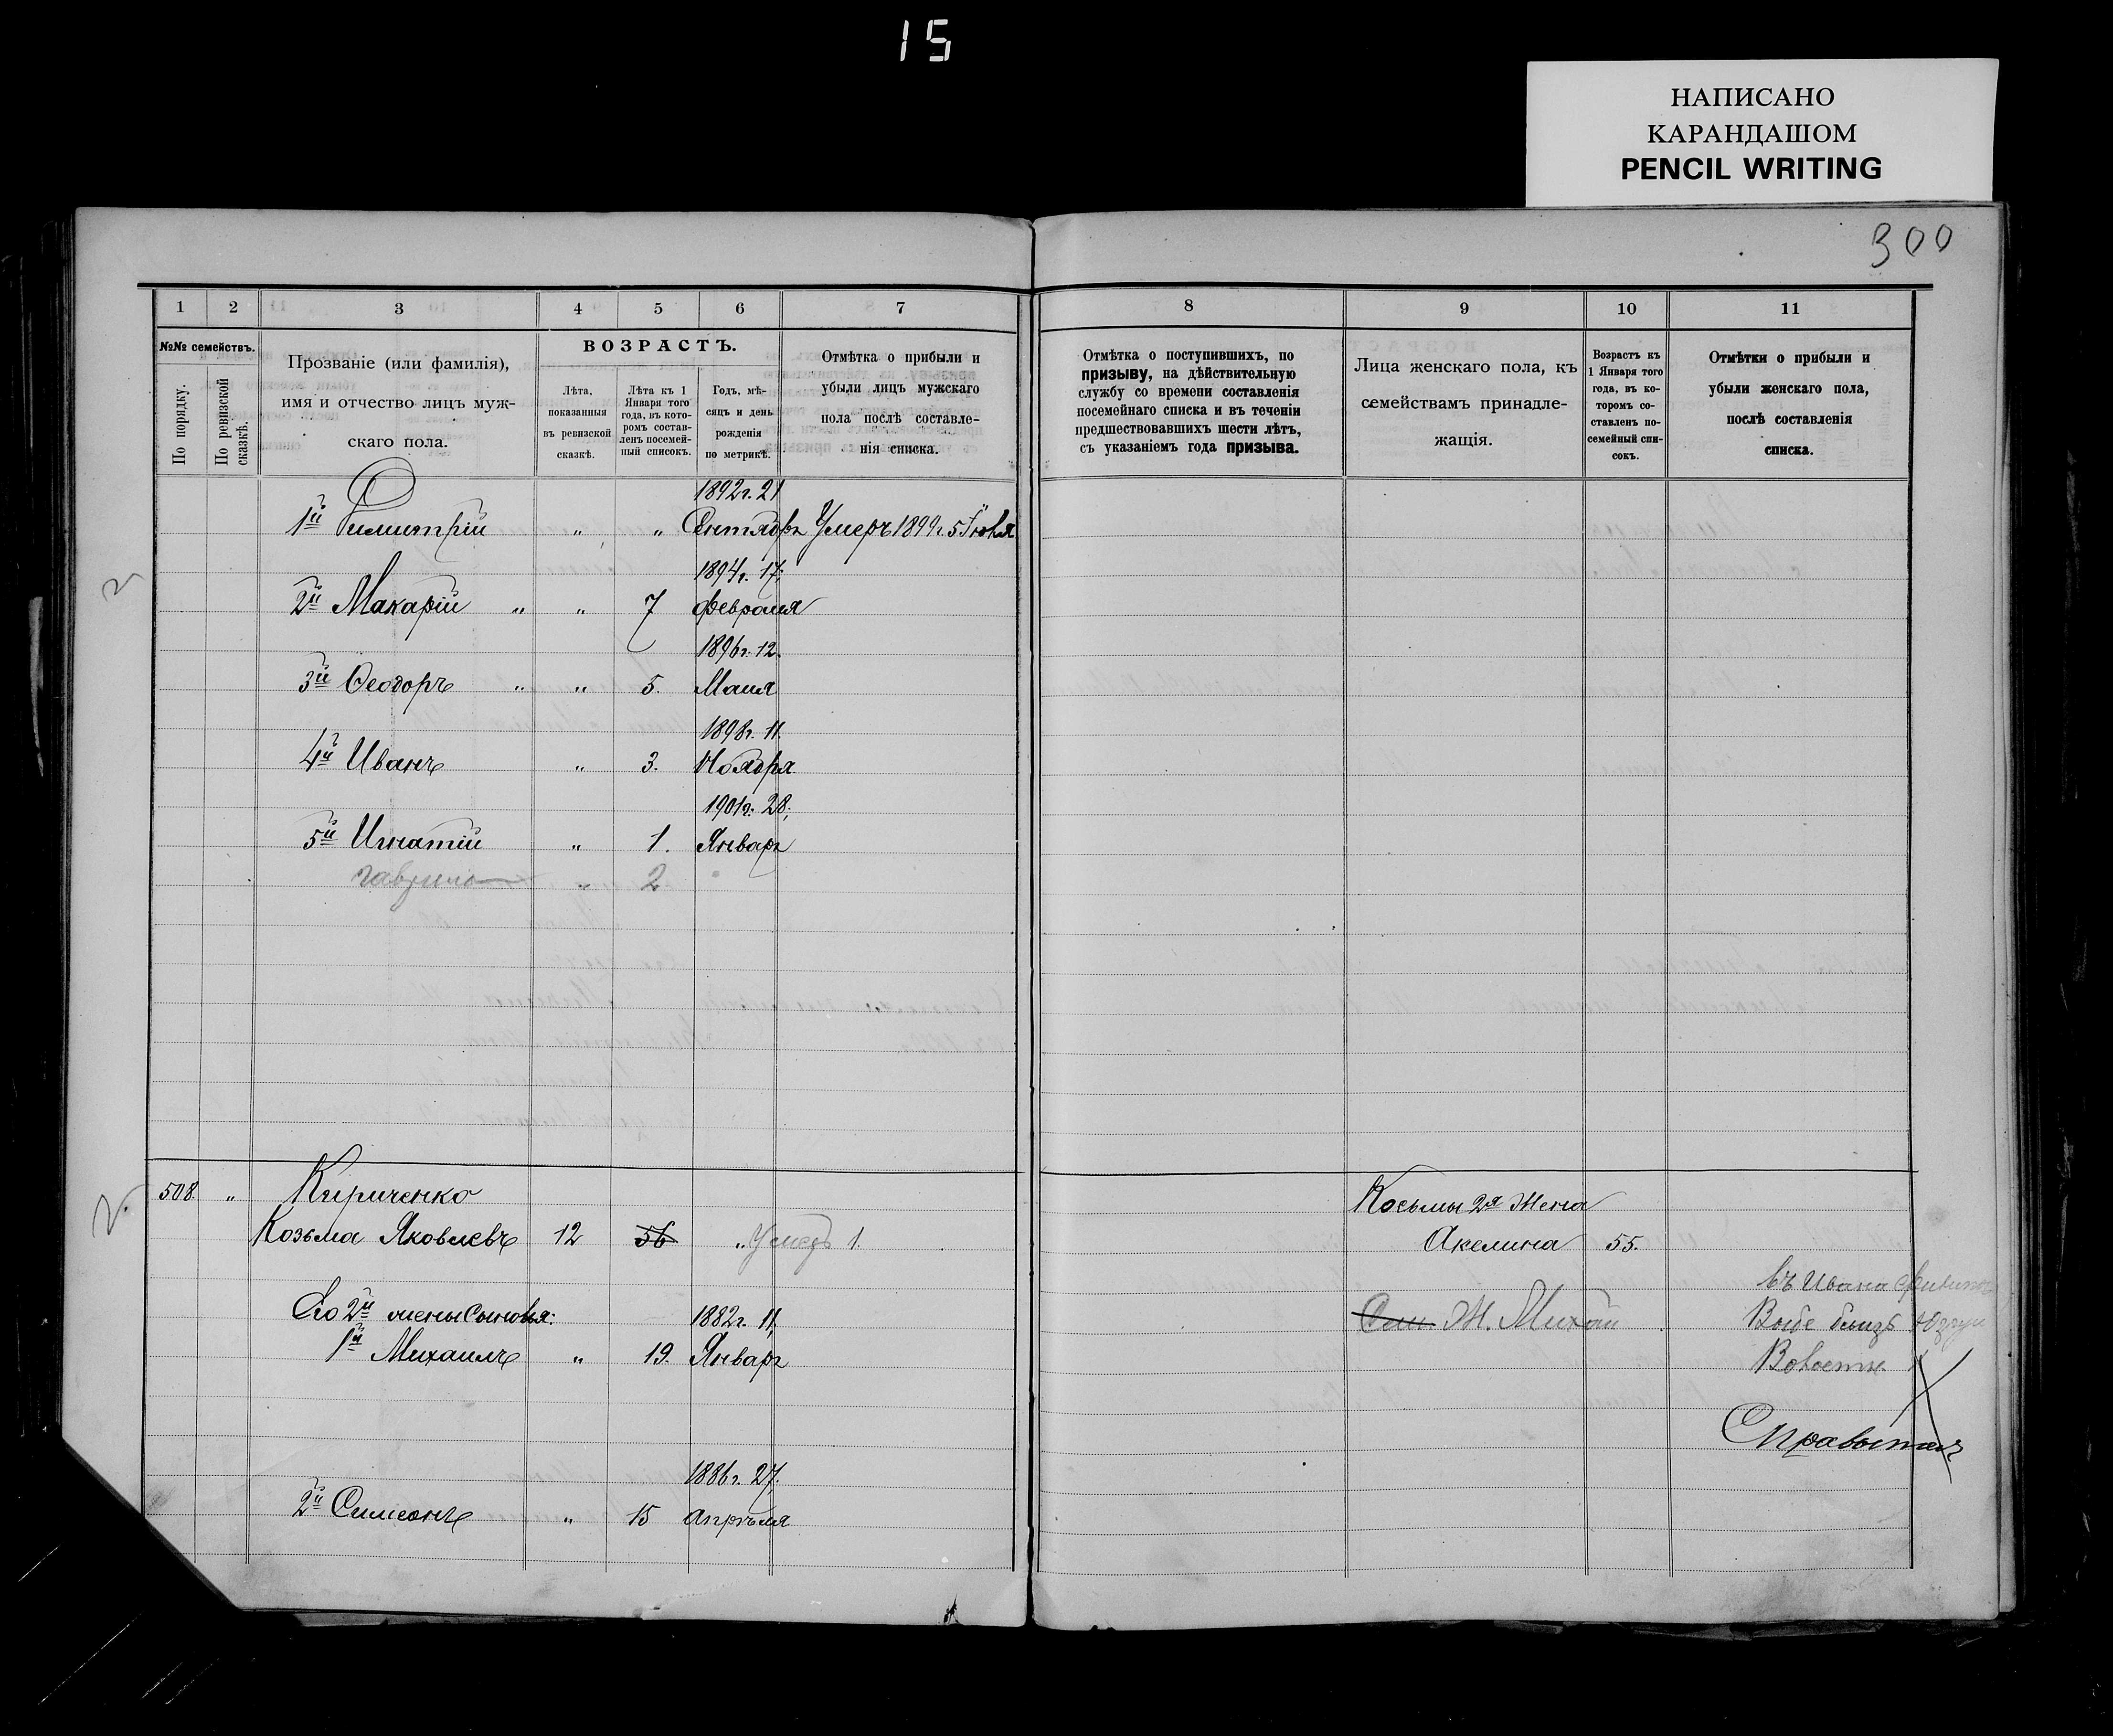 15
НАПИСАНО
КАРАНДАШОМ
PENCIL WRITING
300
1 2 3 4 5 6 7
№№ семействъ.
По порядку.
По ревизской сказкѣ.
Прозваніе (или фамилія),
имя и отчество лицъ муж-
скаго пола.
ВОЗРАСТЪ.
Лѣта,
показанныя
въ ревизской
сказкѣ.
Лѣта къ 1
Января того
года, въ кото-
ромъ состав-
ленъ посемей-
ный списокъ.
Годъ, мѣ-
сяцъ и день
рожденія
по метрикѣ.
Отмѣтка о прибыли и
убыли лицъ мужскаго
пола послѣ составле-
нія списка.
8 9 10 11
Отмѣтка о поступившихъ, по
призыву, на дѣйствительную
службу со времени составленія
посемейнаго списка и въ теченіи
предшествовавшихъ шести лѣтъ,
съ указаніемъ года призыва.
Лица женскаго пола, къ
семействамъ принадле-
жащія.
Возрастъ къ
1 Января того
года, въ ко-
торомъ со-
ставленъ по-
семейный спи-
сокъ.
Отмѣтки о прибыли и
убыли женскаго пола,
послѣ составленія
списка.
1892г. 21
1й Димитрій " " Сентябрь Умеръ 1899г. 5 Іюля
1894г. 17.
2й Макарій " " 7 Февраля
1896г. 12.
3й Ѳеодоръ " " 5. Маия
1898г. 11.
4й Иванъ " 3. Ноября
1901г. 28.
5й Игнатій " 1. Январь
Гаврило " 2
508. " Кириченко
Козьма Яковлевъ 12 56 " Умеръ 1.
Его 2й жены Сыновья: 1882г. 11,
1й Михаилъ " 19. Январь
1886г. 27.
2й Симеонъ " 15 Апрѣля
Косьмы 2я Жена
Акелина 55.
Ж. Михаи
въ Ивана
Волости